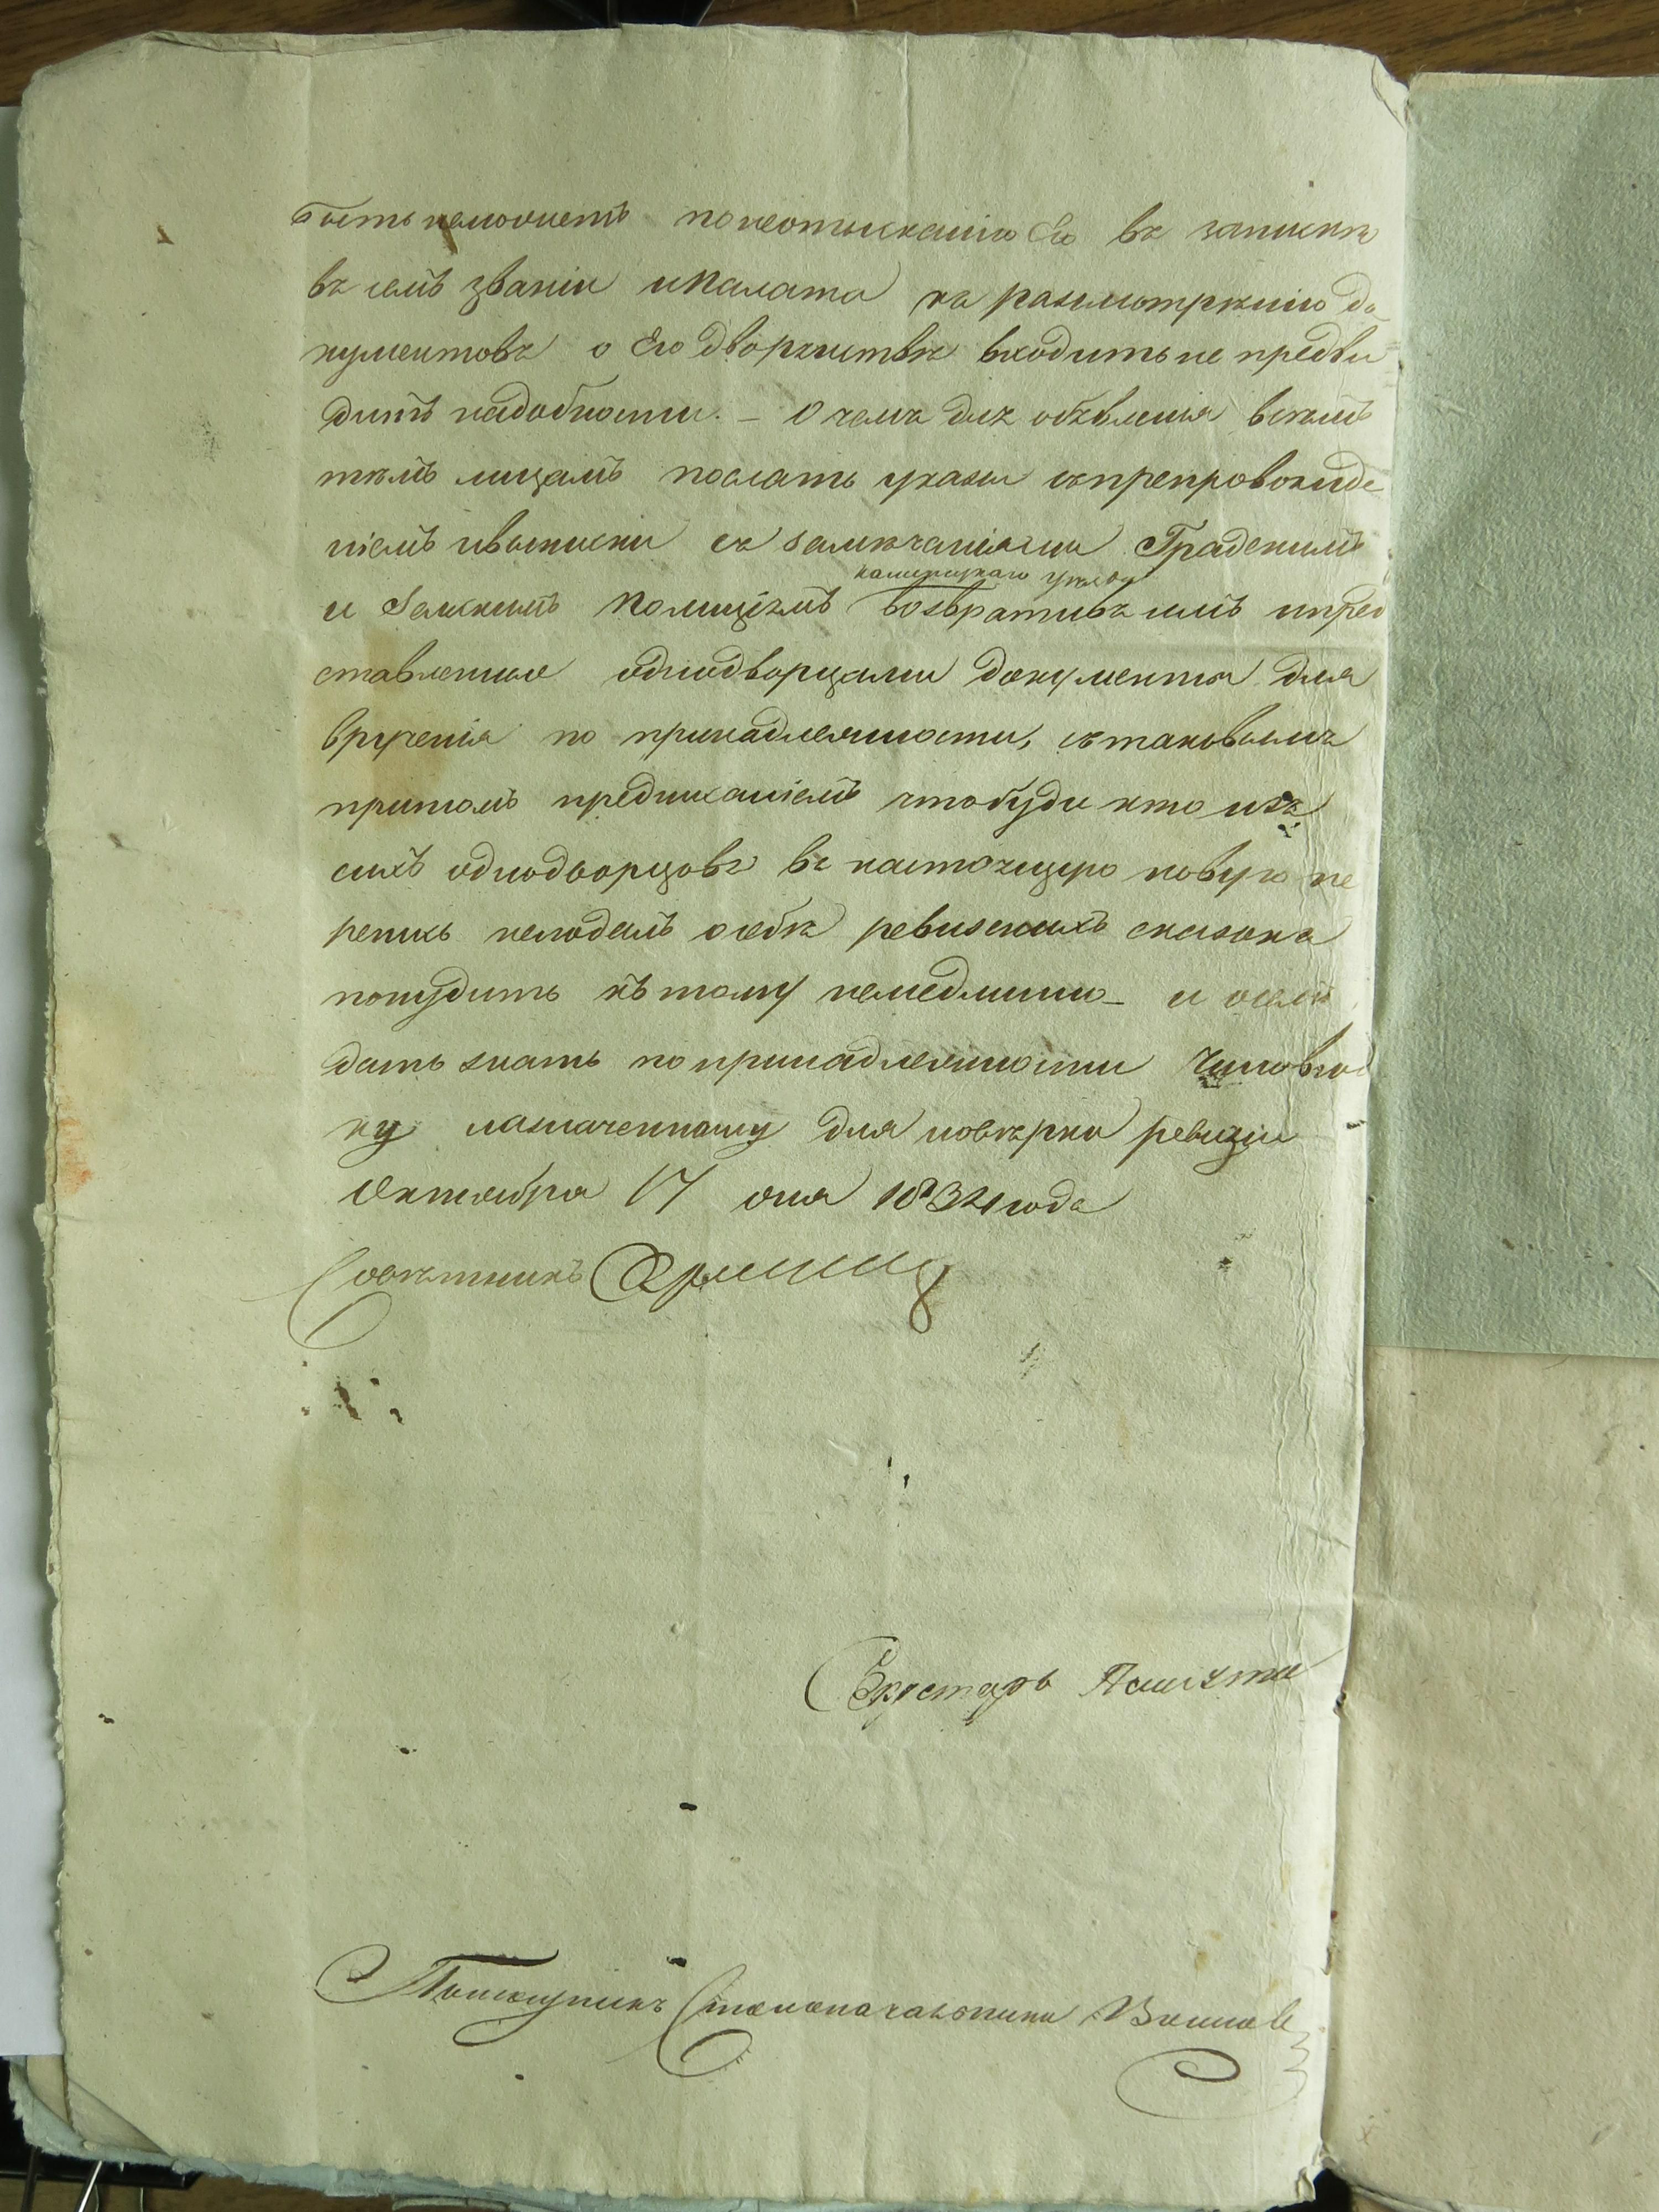 быть неможетъ понеотысканію Его въ запискѣ
въ семъ званіи иПалата къ разсмотрѣнію до
кументовъ о Его дворянствѣ входить не предви
дитъ надобности. – О чемъ для объявленія всѣмъ
тѣмъ лицамъ послать указы съпрепровожде
ніемъ ивыписки съ замѣчаніями Градскимъ
каменецкаго уѣзда
и Земскимъ Полиціямъ возвративъ имъ ипред
ставленные однодворцами документы для
врученія по принадлежности, сътаковымъ
притомъ предписаніемъ чтобуди кто изъ
сихъ однодворцовъ въ настоящую новую пе
репись неподалъ осебѣ ревизскихъ сказокъ
понудить къ тому немедлинно – и осемъ
дать знать попринадлежности Чиновни
ку назначенному для повѣрки ревизіи
Октября 17 дня 1834 года
Совѣтникъ
Секретарь
Помощникъ Столоначальника